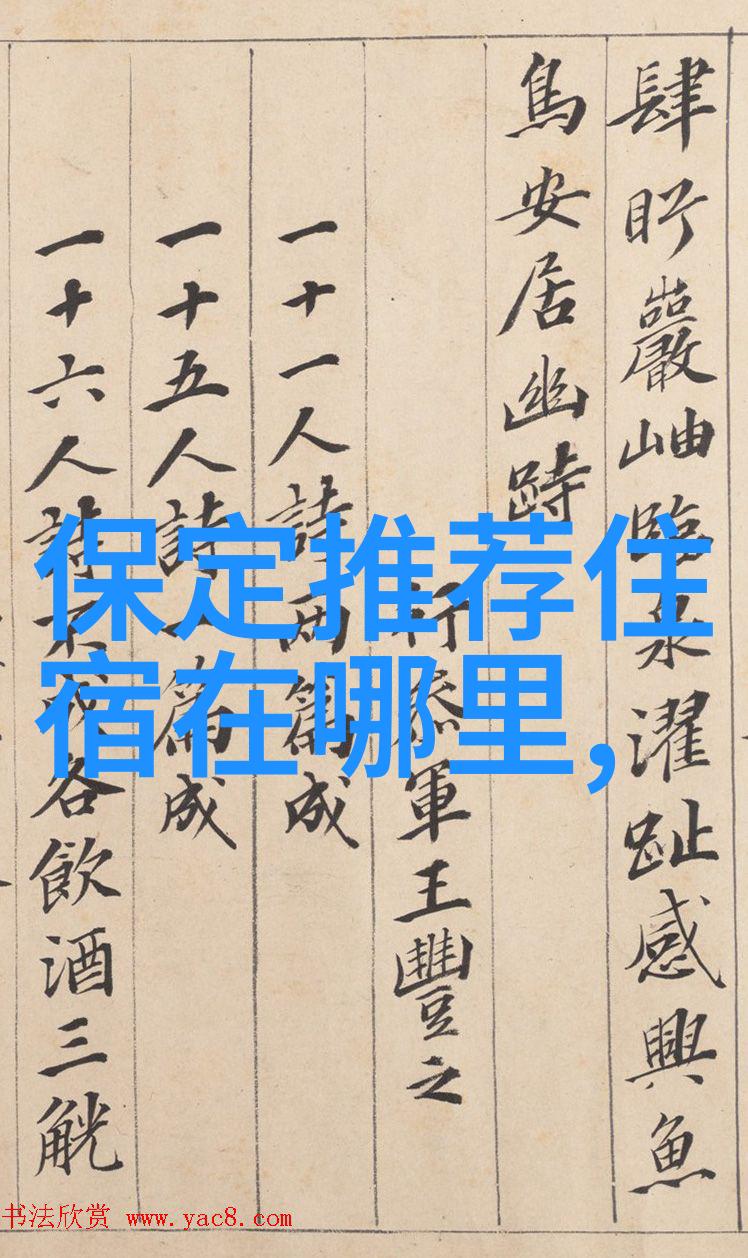 肆眄巖岫臨泉濯趾感興魚
鳥安居幽跱
行叅軍王豐之
一十一人詩兩篇成
一十五人詩一篇成
一十六人詩不成各飲酒三觥
保定推荐住
宿在哪里,
书法欣赏 www.yac8.com